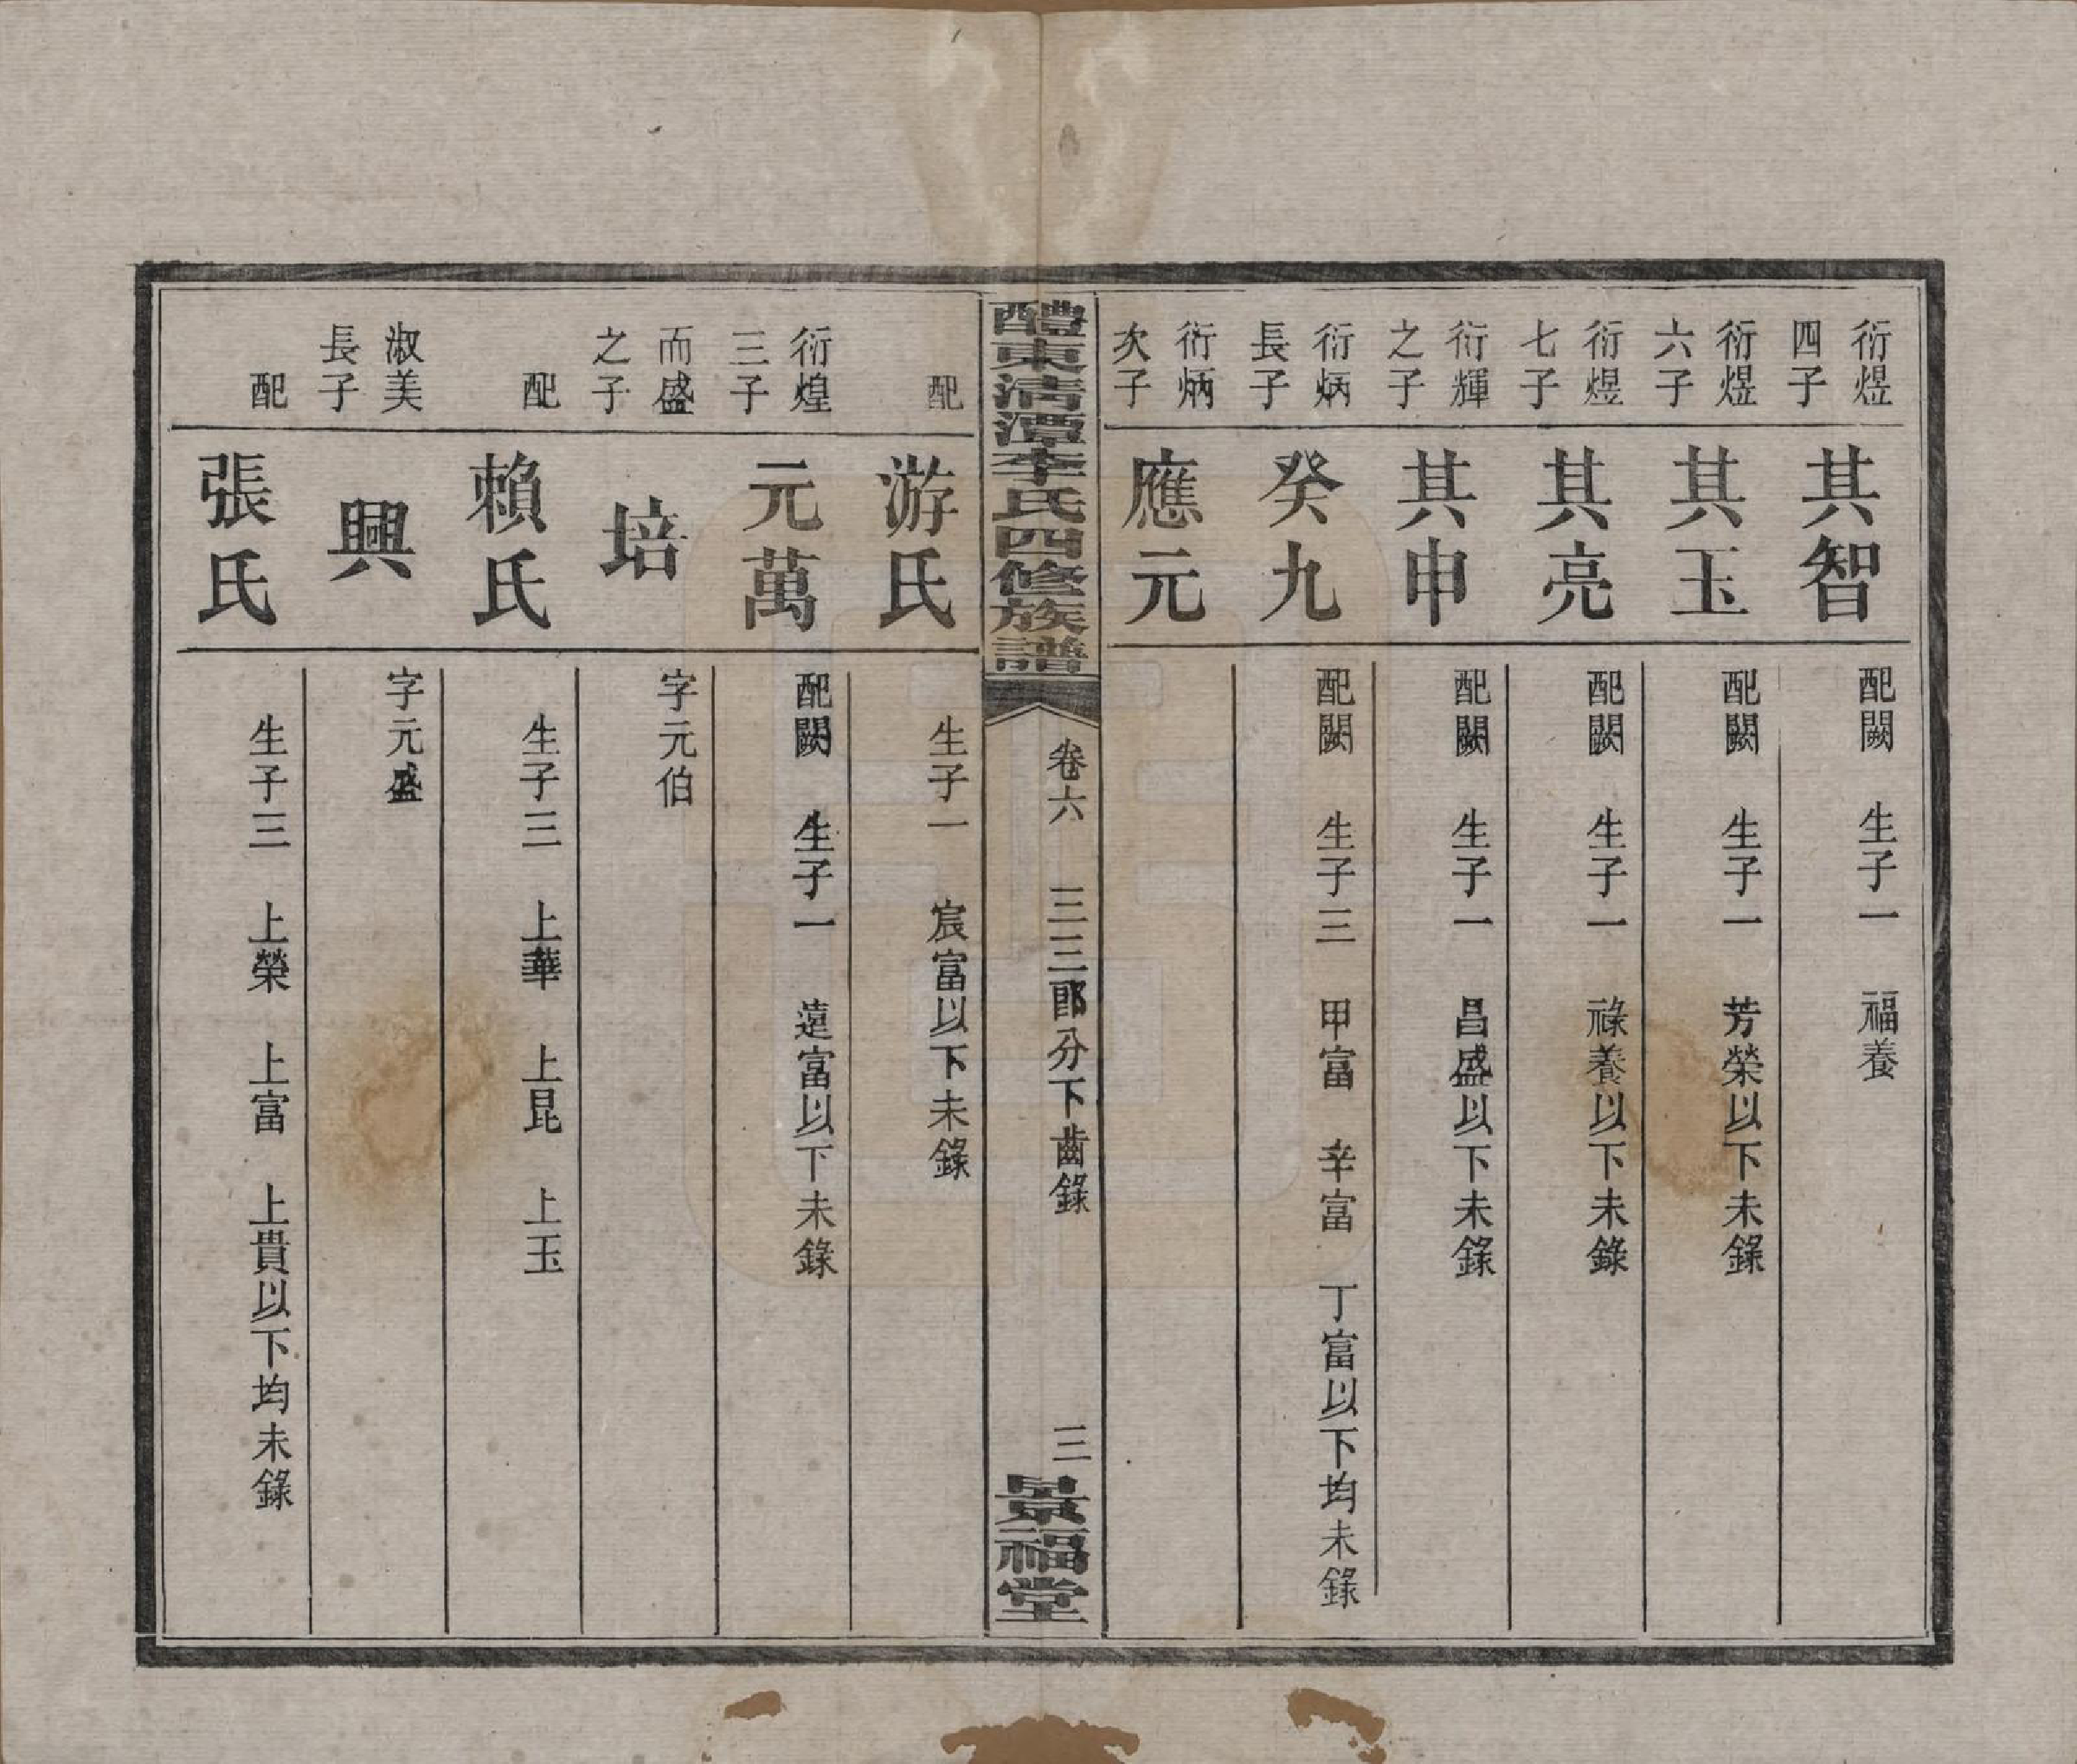 衍煜四子
其智
配闕 生子一 福養
衍煜六子
其玉
配闕 生子一 芳榮以下未錄
衍煜七子
其亮
配闕 生子一 祿養以下未錄
衍輝之子
其申
配闕 生子一 昌盛以下未錄
衍炳長子
癸九
配闕 生子三 甲富 辛富 丁富以下均未錄
衍炳次子
應元
醴東清潭李氏四修族譜
卷六 三三郎分下齒錄 三
景福堂
配
游氏
生子一 宸富以下未錄
衍煌三子
元萬
配闕 生子一 遠富以下未錄
而盛之子
培
字元伯
配
賴氏
生子三 上華 上昆 上玉
淑美長子
興
字元盛
配
張氏
生子三 上榮 上富 上貴以下均未錄